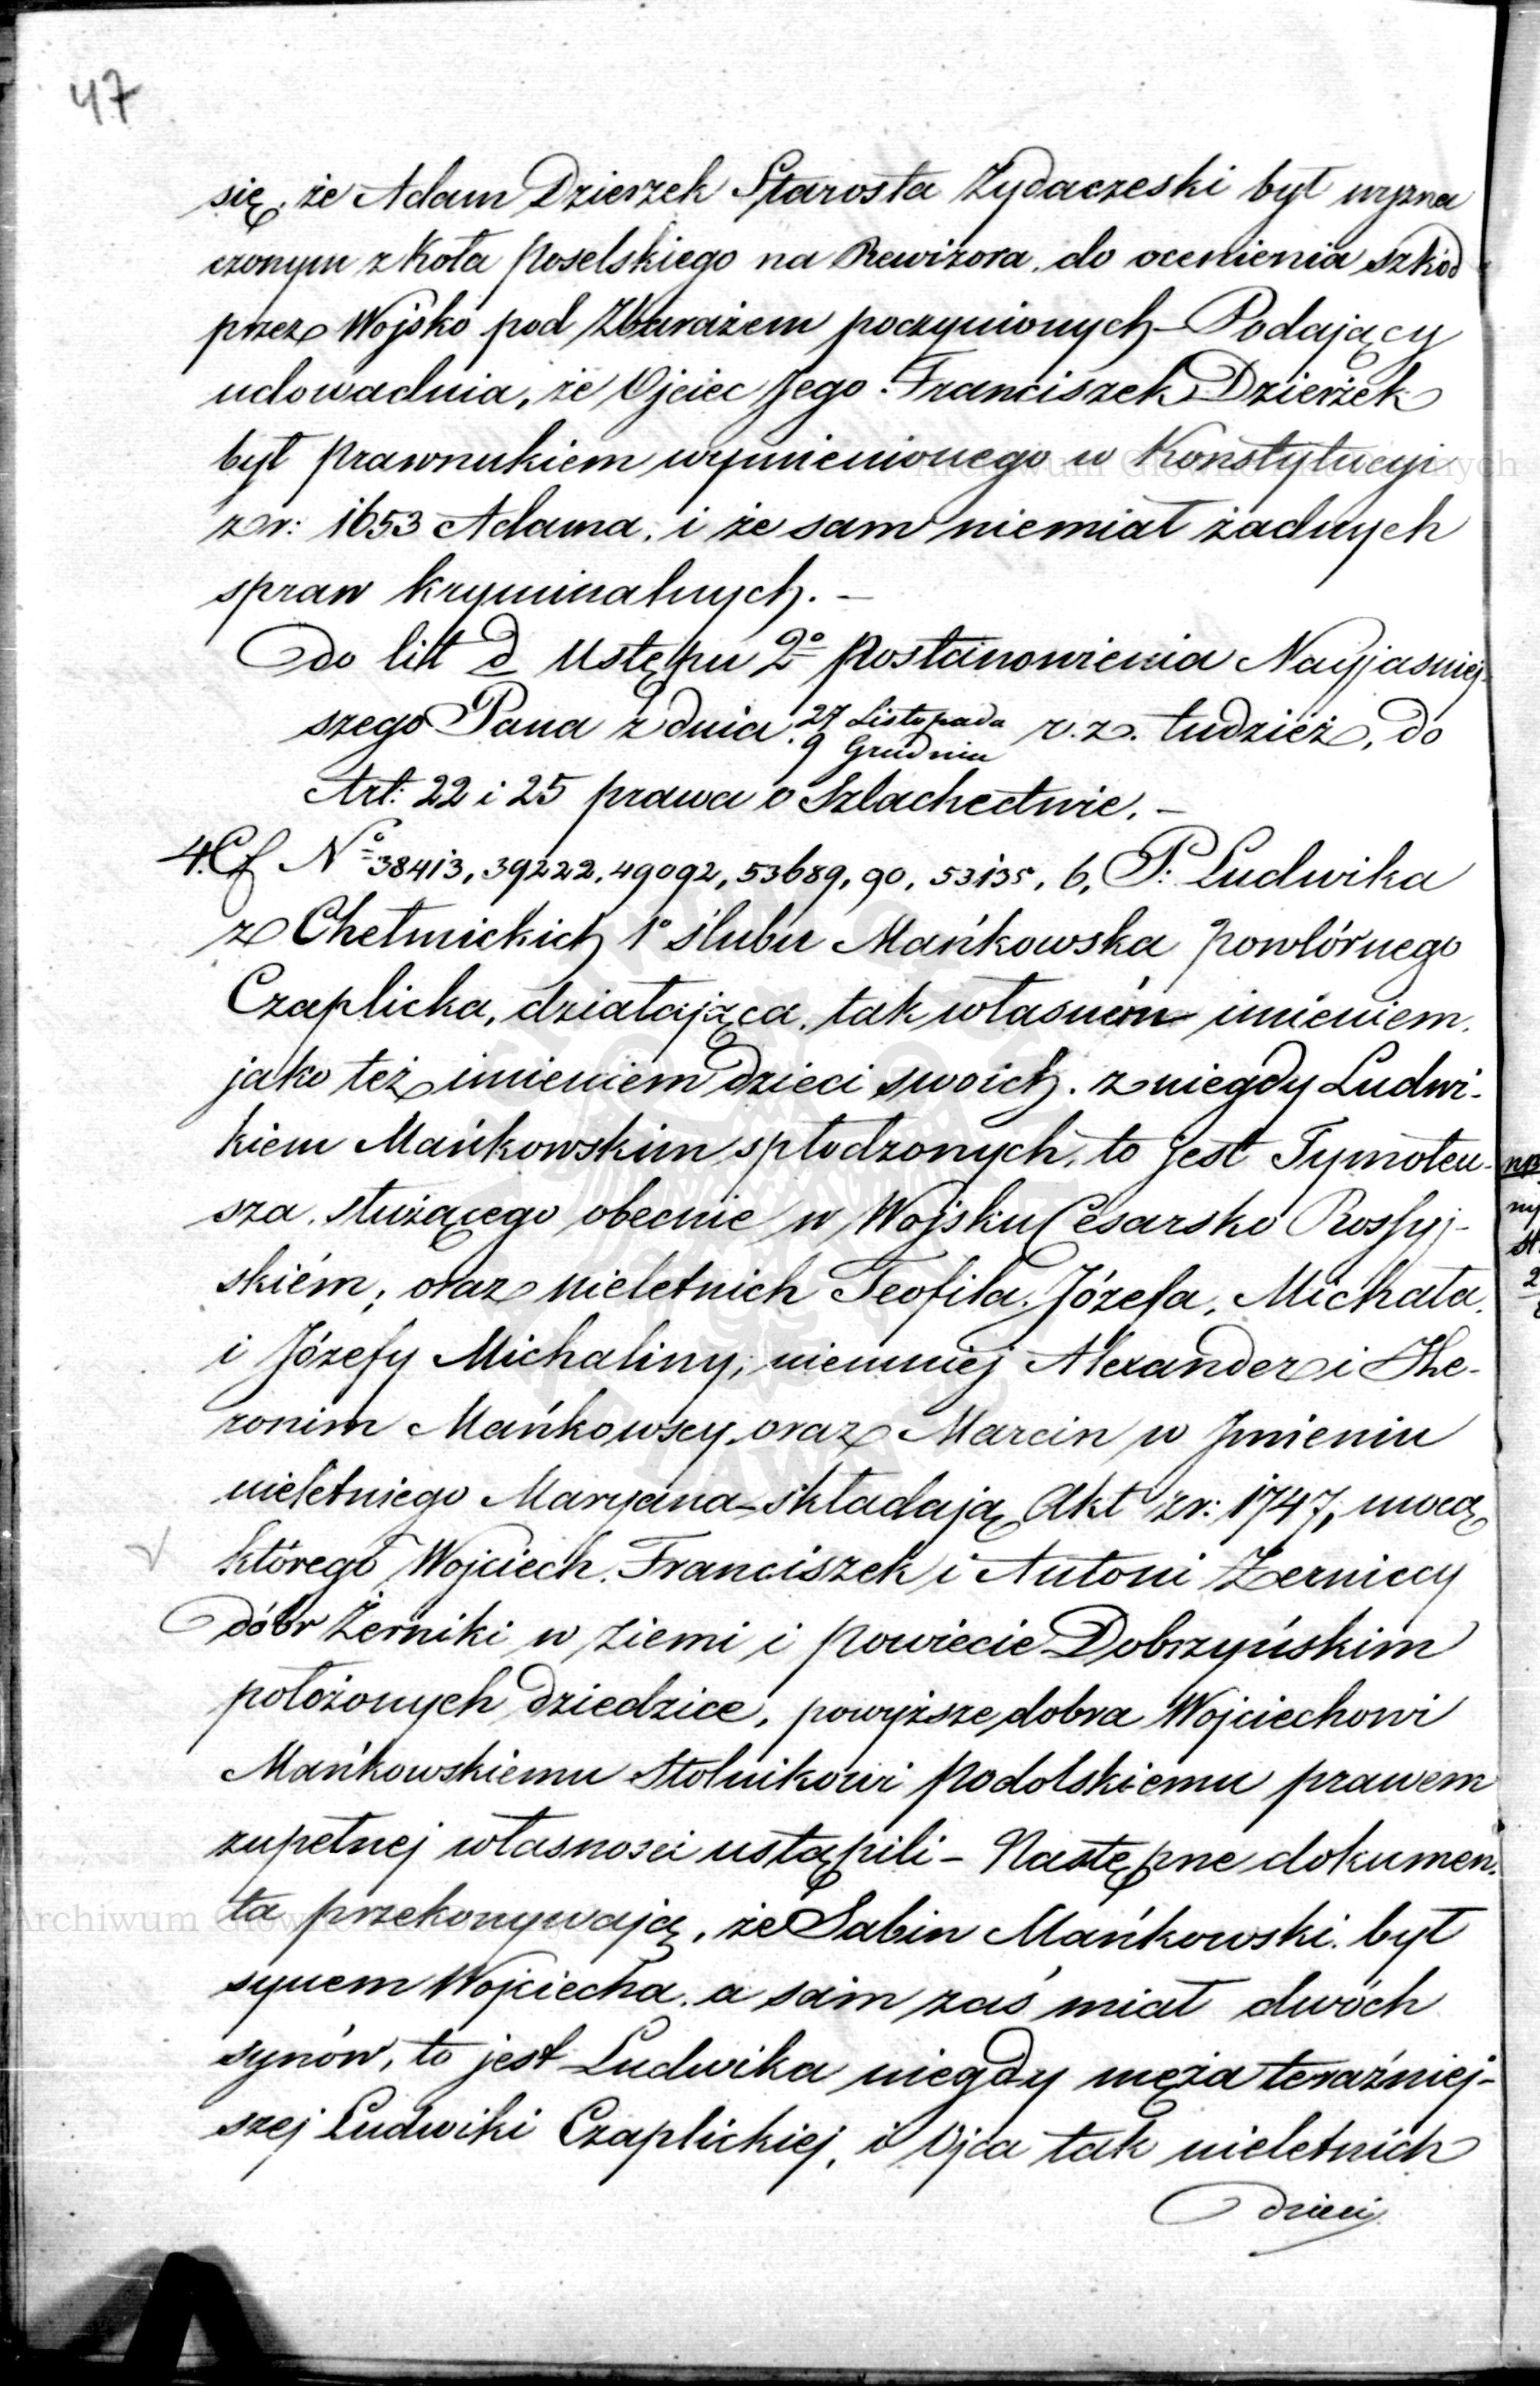 47
się, że Adam Dzierżek Starosta Zydaczeski był wyzna
czonym z Koła poselskiego na Rewizora, do ocenienia szkód
przez Wojsko pod Zbarażem poczynionych – Podający
udowadnia, że Ojciec Jego Franciszek Dzierżek
był prawnukiem wymienionego w Konstytucyi
z r: 1653 Adama, i że sam niemiał żadnych
spraw kryminalnych. –
do lit d Ustępu 2º Postanowienia Nayjasniej-
szego Pana z dnia 27 Listopada r. z. tudzież, do
9 Grudnia
Art: 22 i 25 prawa o Szlachectwie. –
4. Nº 38413, 39222, 49092, 53689, 90, 53135, 6, P: Ludwika
z Chełmickich 1º ślubu Mańkowska powtórnego
Czaplicka, działająca, tak własném imieniem,
jako też imieniem dzieci swoich, z niegdy Ludwi-
kiem Mańkowskim spłodzonych, to jest Tymoteu-
sza, służącego obecnie w Wojsku Cesarsko Rossyj-
skiém, oraz nieletnich Teofila, Józefa, Michała,
i Józefy Michaliny, niemniej Alexander i Hie-
ronim Mańkowscy, oraz Marcin w Jmieniu
nieletniego Maryana – składają Akt z r: 1747, mocą
którego Wojciech, Franciszek i Antoni Żerniccy
dóbr Żerniki w ziemi i powiecie Dobrzyńskim
położonych dziedzice, powyższe dobra Wojciechowi
Mańkowskiemu Stolnikowi podolskiemu prawem
zupełnej własności ustąpili – Następne dokumen-
ta przekonywają, że Sabin Mańkowski, był
synem Wojciecha, a sam zaś miał dwóch
synów, to jest Ludwika niegdy męża teraźniej-
szej Ludwiki Czaplickiej, i Ojca tak nieletnich
dzieci